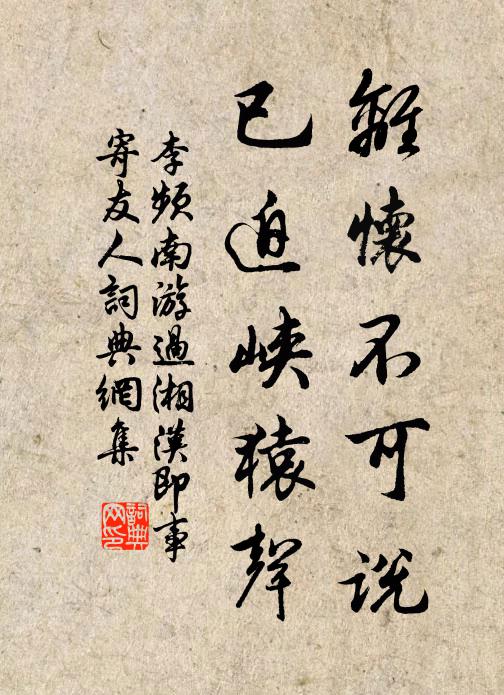 離懷不可説
已迫峽猿聲
李頻南游過湘漢即事
寄友人詞典網集
詞典
网印